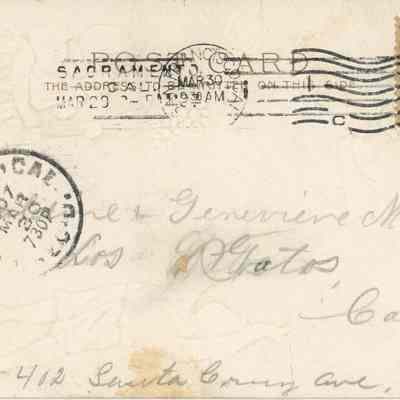 POST CARD
SACRAMENTO
CAL.
THE ADDRESS TO BE WRITTEN ON THIS SIDE
MAR 29
MAR 30
AM
C
CAL.
MAR 30
730P
& Genevieve M
Los Gatos
Ca
402 Santa Cruz Ave,